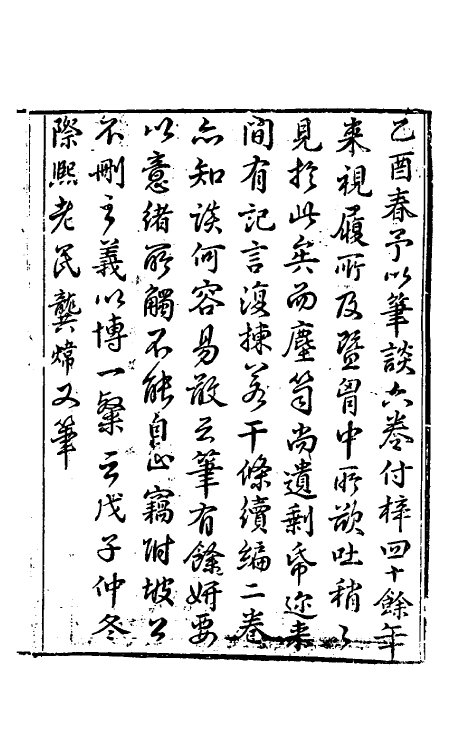 乙酉春予以筆談六卷付梓四十餘年
來視履所及暨胷中所欲吐稍々
見於此矣而塵笥尚遺剩帋邇來
間有記言復揀若干條續編二卷
亦知談何容易敢云筆有餘妍要
以意緒所觸不能自止竊附坡公
不刪之義以博一粲云戊子仲冬
際熙老民龔煒又筆